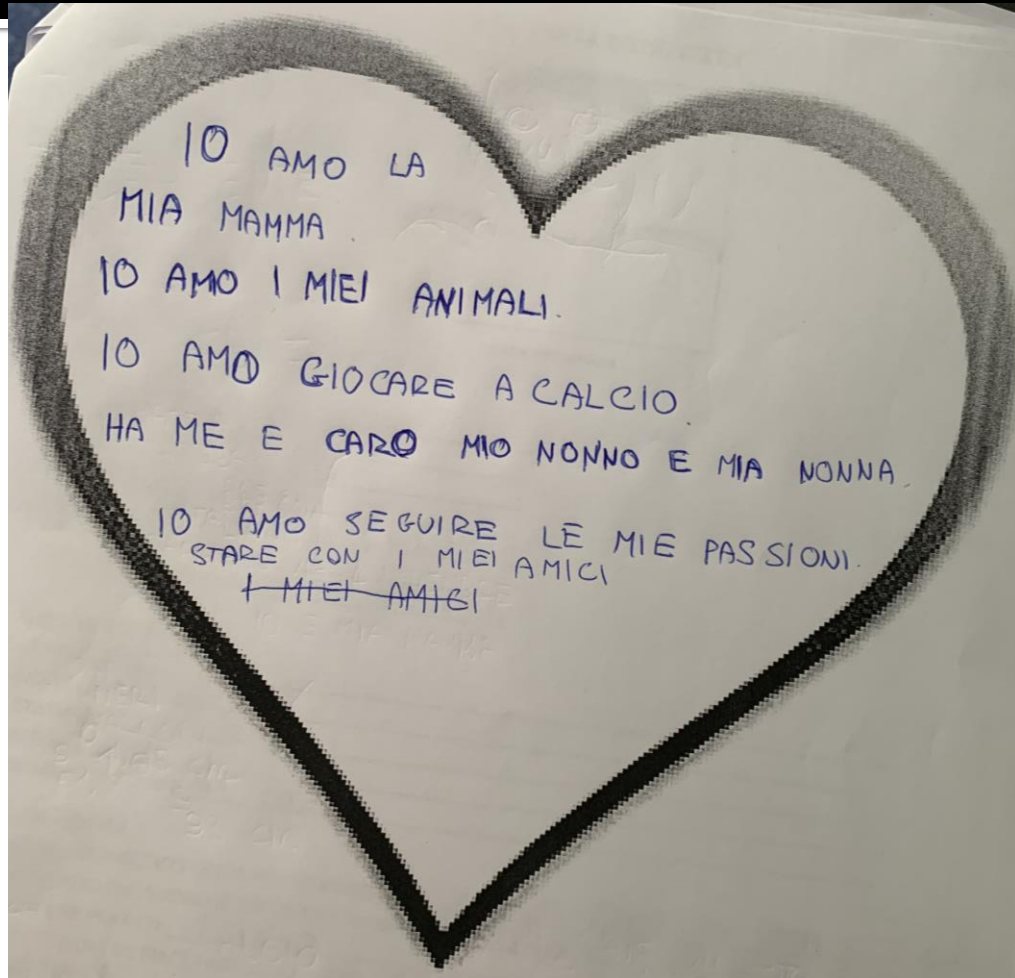 IO AMO LA
MIA MAMMA.
IO AMO I MIEI ANIMALI.
IO AMO GIOCARE A CALCIO.
HA ME E CARO MIO NONNO E MIA NONNA.
IO AMO SEGUIRE LE MIE PASSIONI.
STARE CON I MIEI AMICI
I MIEI AMICI